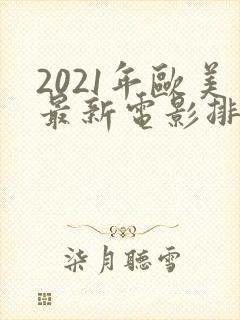 2021年歐美
最新電影排
柒月聽雪